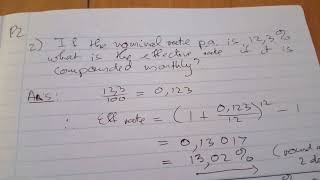 P2
2) If the nominal rate p.a. is 12,3%
what is the effective rate if it is
compounded monthly?
Ans: 12,3/100 = 0,123
∴ Eff rate = (1 + 0,123/12)^12 - 1
= 0,13017
= 13,02% (round
2 d